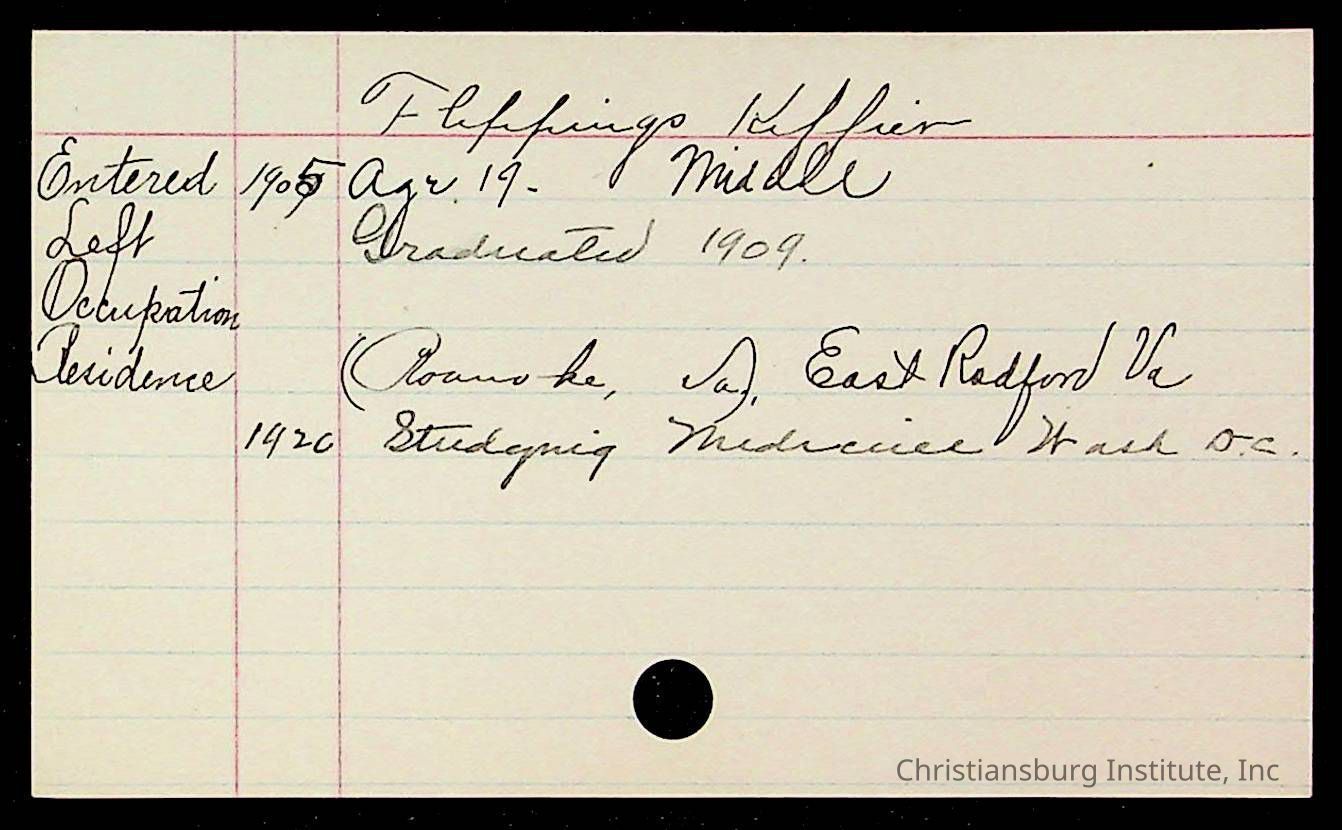 Flippings Keffier
Entered 1905 Age 19. Middle
Left Graduated 1909.
Occupation
Residence (Roanoke, Va), East Radford Va
1920 Studying Medicine Wash D.C.
Christiansburg Institute, Inc